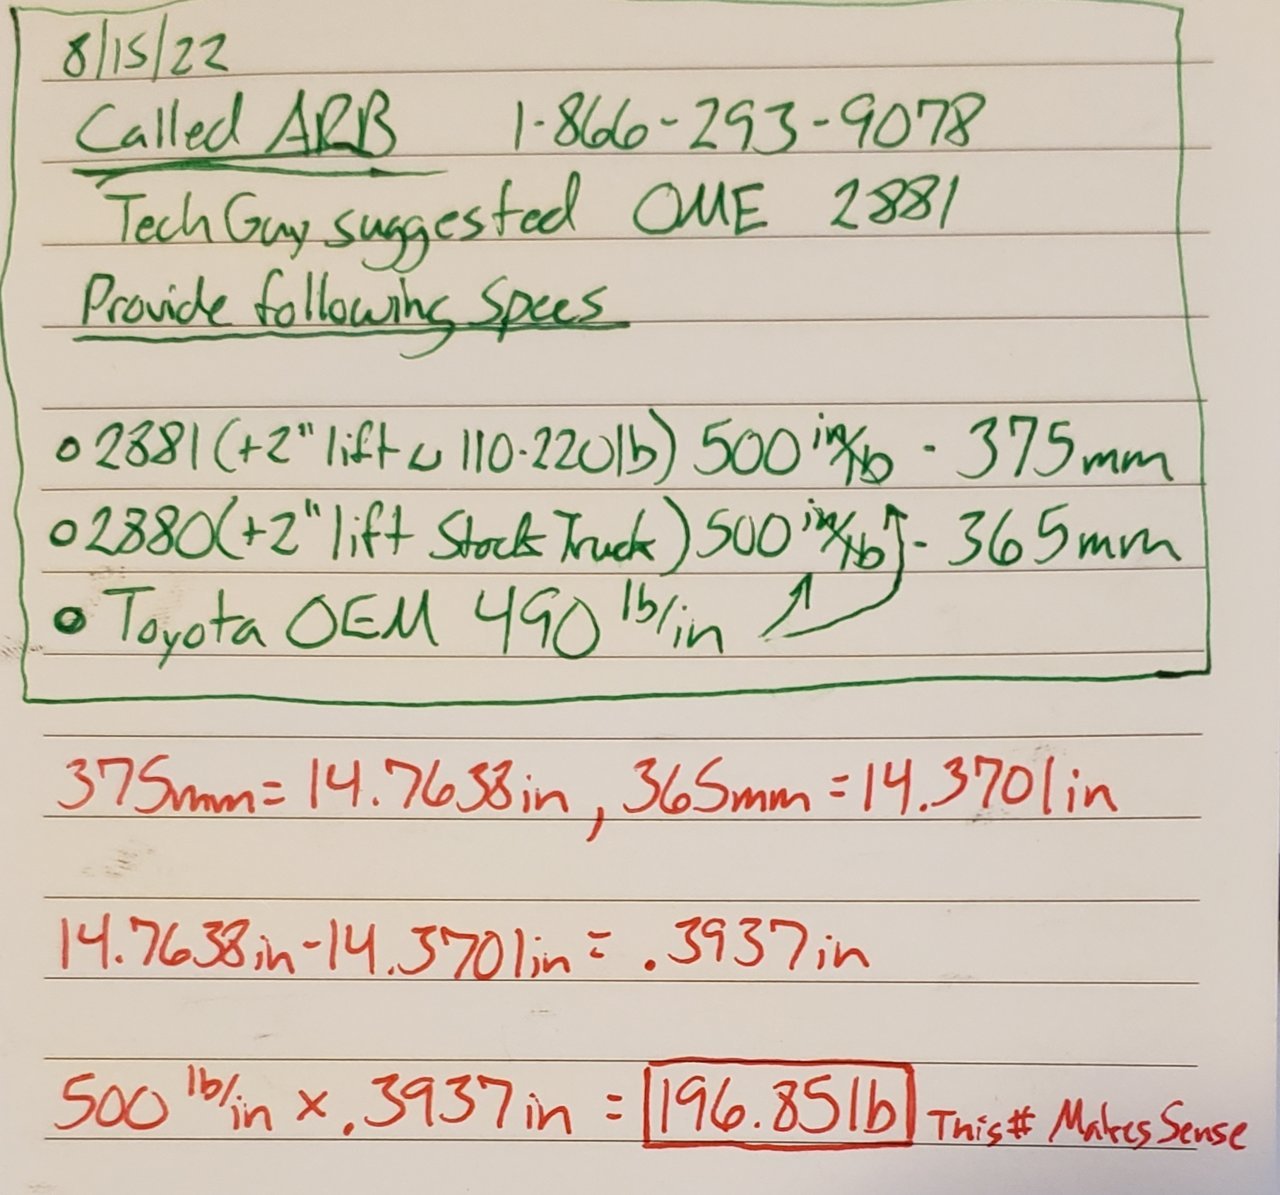 8/15/22
Called ARB 1-866-293-9078
Tech Guy suggested OME 2881
Provide following Specs
2881 (+2" lift w 110-220lb) 500 in/lb - 375mm
2880 (+2" lift Stock Truck) 500 in/lb - 365mm
Toyota OEM 490 lb/in
375mm = 14.7638in, 365mm = 14.3701in
14.7638in - 14.3701in = .3937in
500 lb/in x .3937in = 196.85lb This # Makes Sense